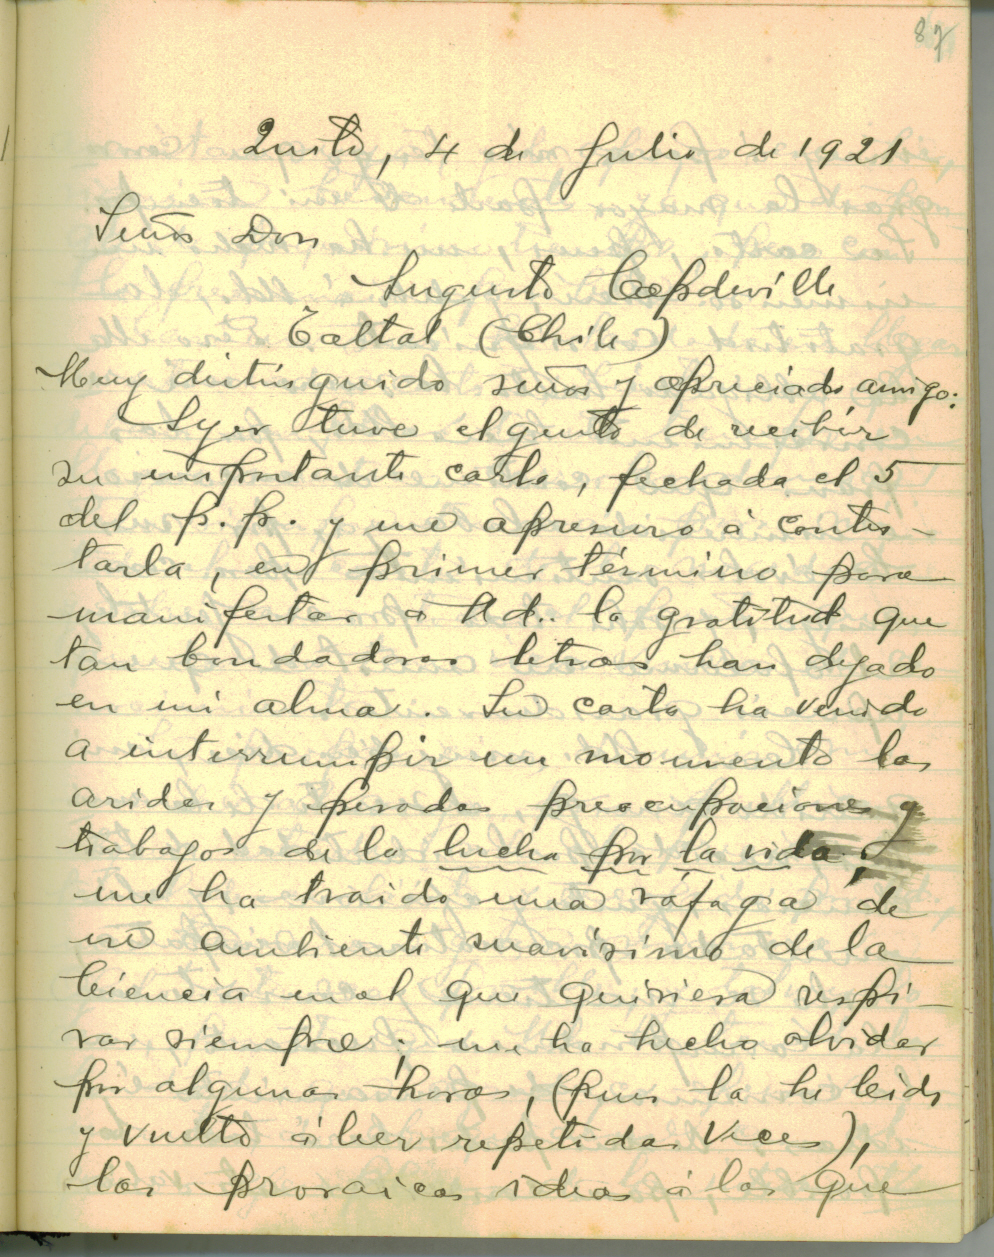 87
Quito, 4 de Julio de 1921
Señor Don
Augusto Capdeville
Taltal (Chile)
Muy distinguido señor y apreciado amigo:
Ayer tuve el gusto de recibir
su importante carta, fechada el 5
del p.p. y me apresuro á contes-
tarla, en primer término para
manifestar á Ud. la gratitud que
tan bondadosas letras han dejado
en mi alma. Su carta ha venido
a interrumpir un momento las
arides y pesadas preocupaciones y
trabajos de la lucha por la vida;
me ha traido una ráfaga de
un ambiente suavísimo de la
Ciencia en el que quisiera respi-
rar siempre; me ha hecho olvidar
por algunas horas, (pues la he leido
y vuelto á leer repetidas veces),
las prosaicas ideas á las que